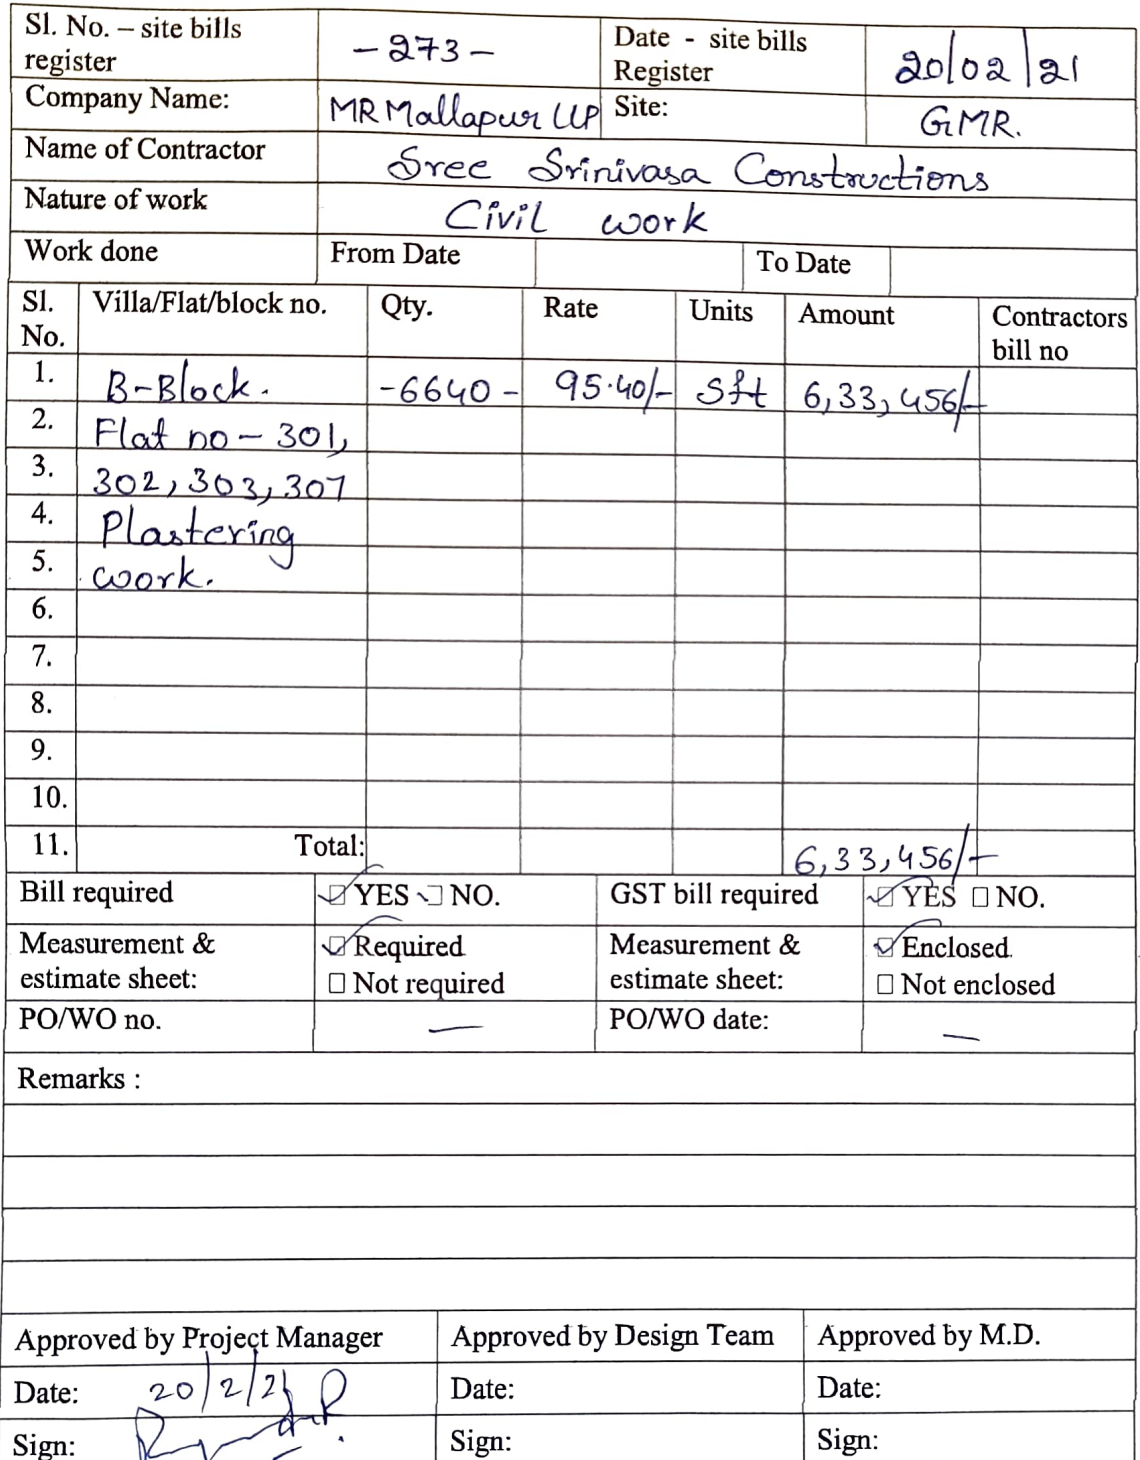 Sl. No. – site bills register -273- Date - site bills Register 20/02/21
Company Name: MR Mallapur LLP Site: GMR.
Name of Contractor Sree Srinivasa Constructions
Nature of work Civil work
Work done From Date To Date
Sl. No. Villa/Flat/block no. Qty. Rate Units Amount Contractors bill no
1. B-Block. -6640- 95.40/- Sft 6,33,456/-
2. Flat no - 301,
3. 302, 303, 307
4. Plastering
5. work.
6.
7.
8.
9.
10.
11. Total: 6,33,456/-
Bill required ☑ YES ☐ NO. GST bill required ☑ YES ☐ NO.
Measurement & estimate sheet: ☑ Required ☐ Not required Measurement & estimate sheet: ☑ Enclosed ☐ Not enclosed
PO/WO no. — PO/WO date: —
Remarks :
Approved by Project Manager Approved by Design Team Approved by M.D.
Date: 20/2/21 Date: Date:
Sign: Sign: Sign: